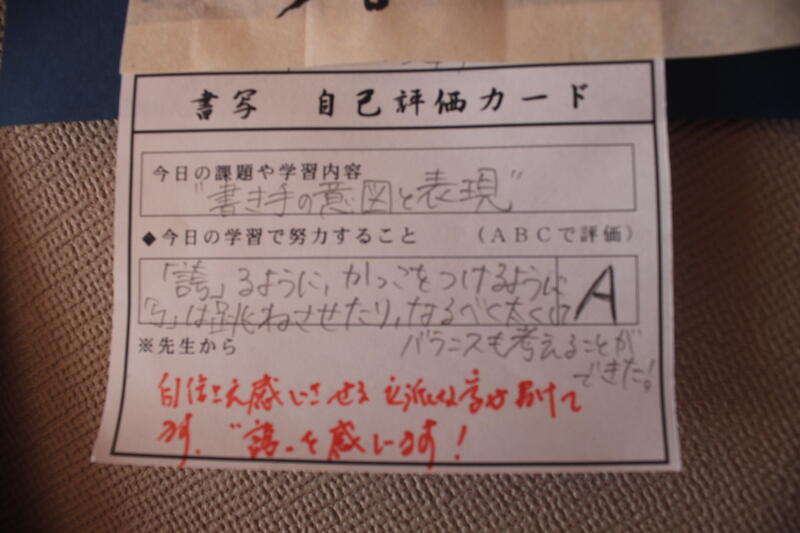 書写 自己評価カード
今日の課題や学習内容
"書き手の意図と表現"
◆今日の学習で努力すること (ABCで評価)
「誇」るように,かっこをつけるように
A
「ら」は跳ねさせたり,なるべく太くし
バランスも考えることが
できた!
※先生から
自信さえ感じさせる立派な字が書けて
ます。"誇"を感じます!